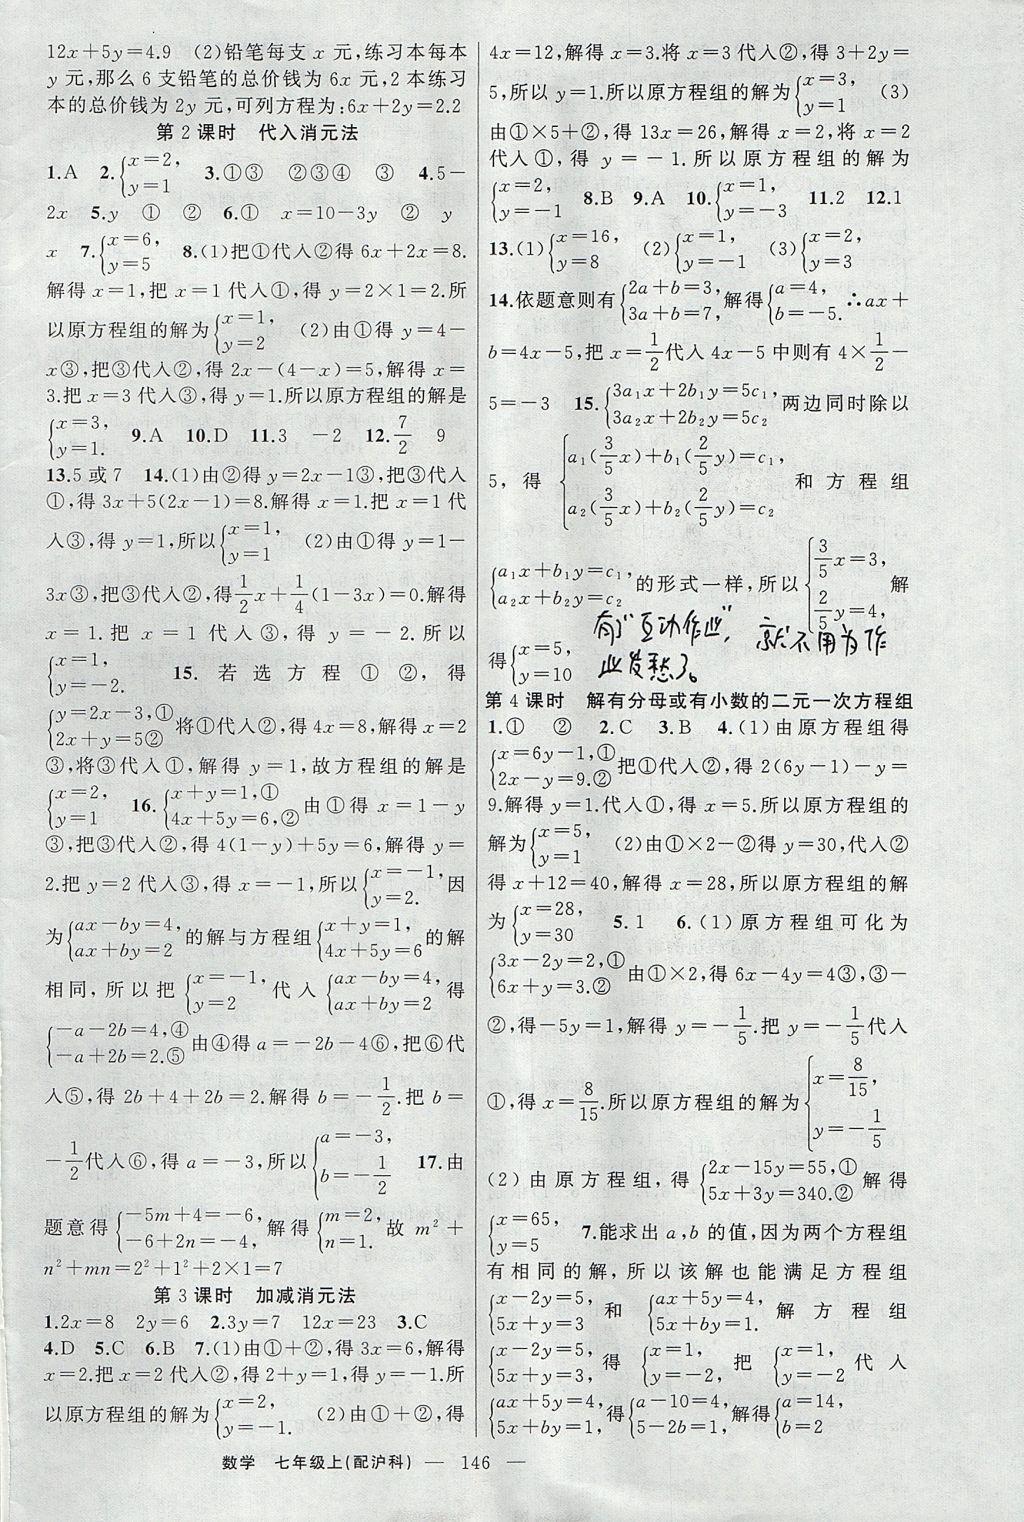 12x+5y=4.9 (2)铅笔每支 x 元,练习本每本
y 元,那么 6 支铅笔的总价钱为 6x 元,2 本练习
本的总价钱为 2y 元,可列方程为:6x+2y=2.2
第 2 课时 代入消元法
1.A 2.{x=2, y=1 3.①③ ②③④ ③ 4.5-
2x 5.y ① ② 6.① x=10-3y ② y
x 7.{x=6, y=5 8.(1)把①代入②得 6x+2x=8.
解得 x=1,把 x=1 代入①,得 y=2×1=2.所
以原方程组的解为{x=1, y=2 (2)由①得 y=4-
x③,把③代入②,得 2x-(4-x)=5,解得 x=
3.把 x=3 代入③,得 y=1.所以原方程组的解是
{x=3, y=1. 9.A 10.D 11.3 -2 12.7/2 9
13.5 或 7 14.(1)由②得 y=2x-1③,把③代入
①,得 3x+5(2x-1)=8.解得 x=1.把 x=1 代
入③,得 y=1,所以{x=1, y=1 (2)由①得 y=1-
3x③,把③代入②,得1/2x+1/4(1-3x)=0.解得
x=1.把 x=1 代入③,得 y=-2.所以
{x=1, y=-2. 15. 若选方程①②,得
{y=2x-3,① 2x+y=5②将①代入②,得 4x=8,解得 x=2
③,将③代入①,解得 y=1,故方程组的解是
{x=2, y=1 16.{x+y=1,① 4x+5y=6,②由①得 x=1-y
③,把③代入②,得 4(1-y)+5y=6,解得 y=
2.把 y=2 代入③,得 x=-1,所以{x=-1, y=2.因
为{ax-by=4, ax+by=2的解与方程组{x+y=1, 4x+5y=6的解
相同,所以把{x=-1, y=2代入{ax-by=4, ax+by=2得
{-a-2b=4,④ -a+2b=2.⑤由④得 a=-2b-4⑥,把⑥代
入⑤,得 2b+4+2b=2.解得 b=-1/2.把 b=
-1/2代入⑥,得 a=-3,所以{a=-3, b=-1/2 17.由
题意得{-5m+4=-6, -6+2n=-4,解得{m=2, n=1.故 m²+
n²+mn=2²+1²+2×1=7
第 3 课时 加减消元法
1.2x=8 2y=6 2.3y=7 12x=23 3.C
4.D 5.C 6.B 7.(1)由①+②,得 3x=6,解得
x=2.把 x=2 代入②,得 2+y=1,得 y=-1.所
以原方程组的解为{x=2, y=-1. (2)由①+②,得
4x=12,解得 x=3.将 x=3 代入②,得 3+2y=
5,所以 y=1.所以原方程组的解为{x=3, y=1 (3)
由①×5+②,得 13x=26,解得 x=2,将 x=2
代入①,得 y=-1.所以原方程组的解为
{x=2, y=-1 8.B 9.A 10.{x=1, y=-3 11.2 12.1
13.(1){x=16, y=8 (2){x=1, y=-1 (3){x=2, y=3
14.依题意则有{2a+b=3, 3a+b=7,解得{a=4, b=-5.∴ax+
b=4x-5,把 x=1/2代入 4x-5 中则有 4×1/2-
5=-3 15.{3a₁x+2b₁y=5c₁, 3a₂x+2b₂y=5c₂两边同时除以
5,得{a₁(3/5x)+b₁(2/5y)=c₁, a₂(3/5x)+b₂(2/5y)=c₂和方程组
{a₁x+b₁y=c₁, a₂x+b₂y=c₂的形式一样,所以{3/5x=3, 2/5y=4,解
得{x=5, y=10
有了“互动作业”,就不用为作
业发愁了。
第 4 课时 解有分母或有小数的二元一次方程组
1.① ② 2.C 3.B 4.(1)由原方程组得
{x=6y-1,① 2x-y=9.②把①代入②,得 2(6y-1)-y=
9.解得 y=1.代入①,得 x=5.所以原方程组的
解为{x=5, y=1 (2)由①×2-②得 y=30,代入②
得 x+12=40,解得 x=28,所以原方程组的解
为{x=28, y=30 5.1 6.(1)原方程组可化为
{3x-2y=2,① 6x+y=3.②由①×2,得 6x-4y=4③,③-
②,得-5y=1,解得 y=-1/5.把 y=-1/5代入
①,得 x=8/15.所以原方程组的解为{x=8/15, y=-1/5
(2)由原方程组,得{2x-15y=55,① 5x+3y=340.②解得
{x=65, y=5 7.能求出 a,b 的值,因为两个方程组
有相同的解,所以该解也能满足方程组
{x-2y=5, 5x+y=3和{ax+5y=4, 5x+by=1.解方程组
{x-2y=5, 5x+y=3,得{x=1, y=-2,把{x=1, y=-2代入
{ax+5y=4, 5x+by=1,得{a-10=4, 5-2b=1,解得{a=14, b=2
数学 七年级上(配沪科) — 146 —